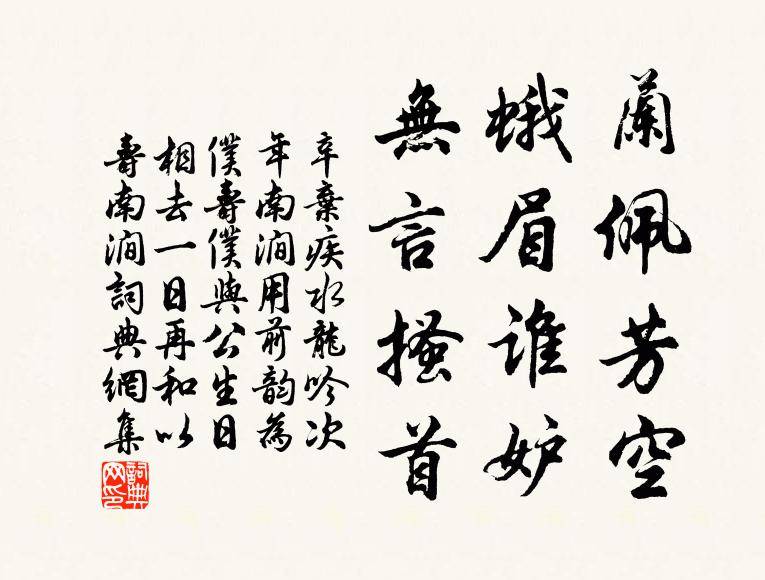 蘭佩芳空
蛾眉誰妒
無言搔首
辛棄疾水龍吟次
年南澗用前韵為
僕壽僕與公生日
相去一日再和以
壽南澗詞典網集
詞典网印